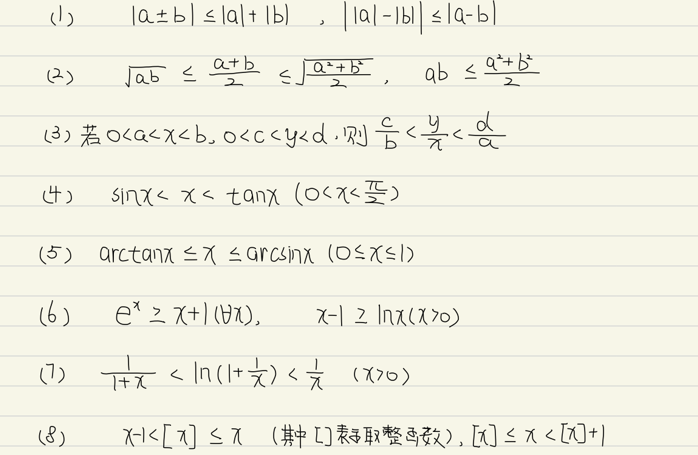 (1) |a±b| ≤ |a|+|b| , ||a|-|b|| ≤ |a-b|
(2) √ab ≤ (a+b)/2 ≤ √((a²+b²)/2) , ab ≤ (a²+b²)/2
(3) 若0<a<x<b, 0<c<y<d, 则 c/b < y/x < d/a
(4) sinx < x < tanx (0<x<π/2)
(5) arctanx ≤ x ≤ arcsinx (0≤x≤1)
(6) eˣ ≥ x+1 (∀x), x-1 ≥ lnx (x>0)
(7) 1/(1+x) < ln(1+1/x) < 1/x (x>0)
(8) x-1<[x] ≤ x (其中[]表示取整函数), [x] ≤ x < [x]+1